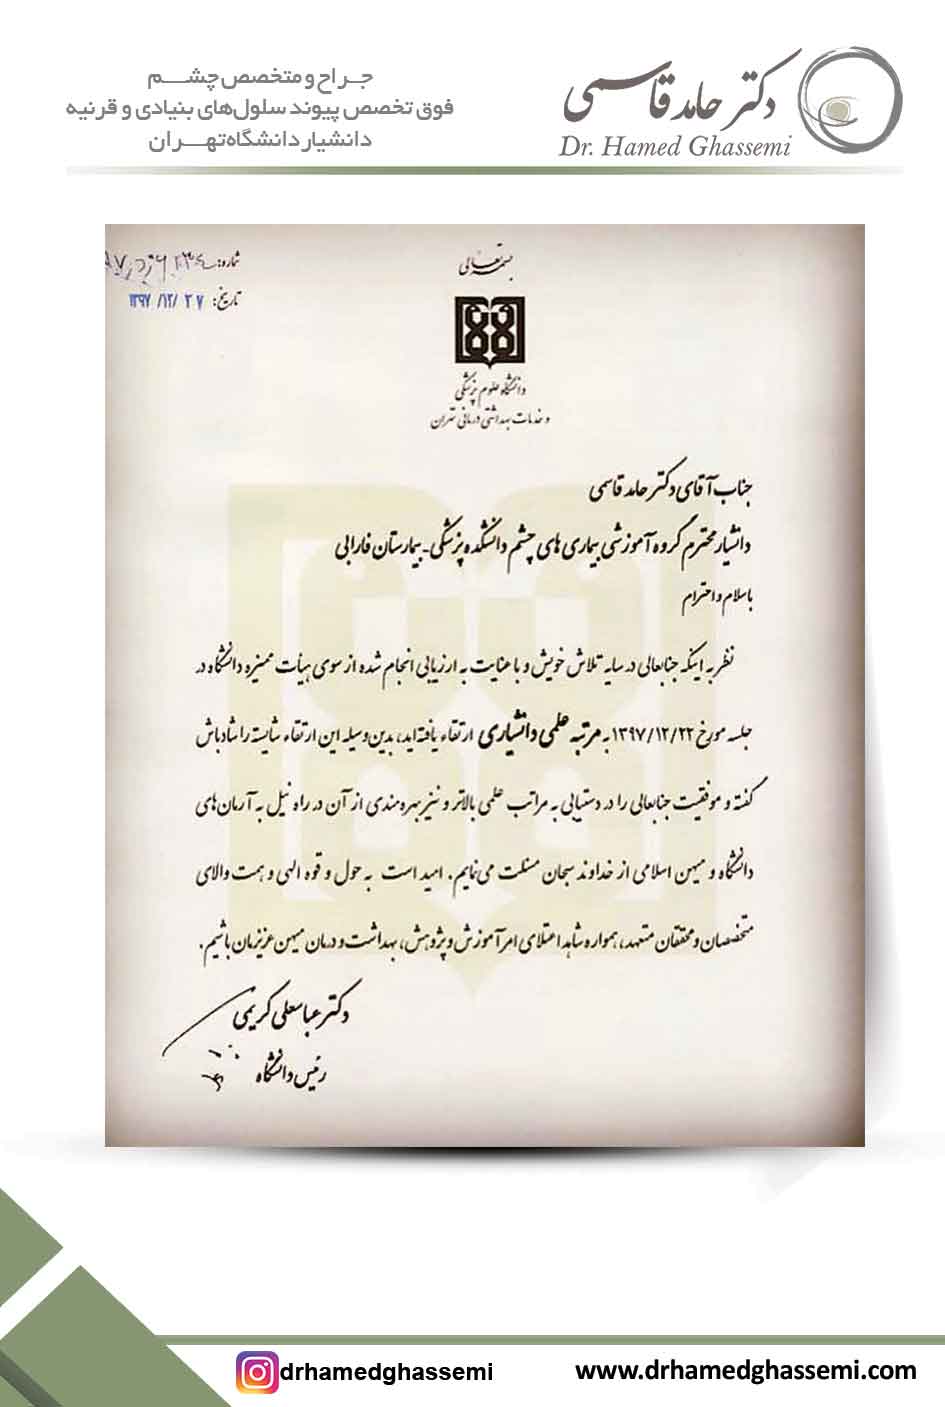 دکتر حامد قاسمی
Dr. Hamed Ghassemi
جراح و متخصص چشم
فوق تخصص پیوند سلول‌های بنیادی و قرنیه
دانشیار دانشگاه تهران
بسمه تعالی
شماره:
تاریخ: ۱۳۹۷/۱۲/۲۷
دانشگاه علوم پزشکی
و خدمات بهداشتی درمانی تهران
جناب آقای دکتر حامد قاسمی
دانشیار محترم گروه آموزشی بیماری های چشم دانشکده پزشکی - بیمارستان فارابی
با سلام و احترام
نظر به اینکه جنابعالی در سایه تلاش خویش و با عنایت به ارزیابی انجام شده از سوی هیأت ممیزه دانشگاه در
جلسه مورخ ۱۳۹۷/۱۲/۲۲ به مرتبه علمی دانشیاری ارتقاء یافته اید، بدین وسیله این ارتقاء شایسته را شادباش
گفته و موفقیت جنابعالی را در دستیابی به مراتب علمی بالاتر و نیز بهره مندی از آن در راه نیل به آرمان های
دانشگاه و میهن اسلامی از خداوند سبحان مسئلت می نمایم. امید است به حول و قوه الهی و همت والای
متخصصان و محققان متعهد، همواره شاهد اعتلای امر آموزش و پژوهش، بهداشت و درمان میهن عزیزمان باشیم.
دکتر عباسعلی کریمی
رئیس دانشگاه
drhamedghassemi
www.drhamedghassemi.com